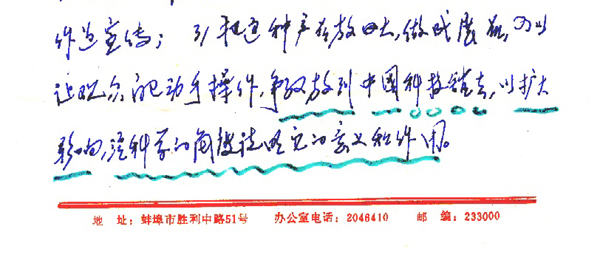 宣传；3/ 把这种产品放大，做成展品，可以
让观众自己动手操作，争取放到中国科技馆去，以扩大
影响，从科学的角度说明它的意义和作用。
地 址：蚌埠市胜利中路51号 办公室电话：2046410 邮 编：233000